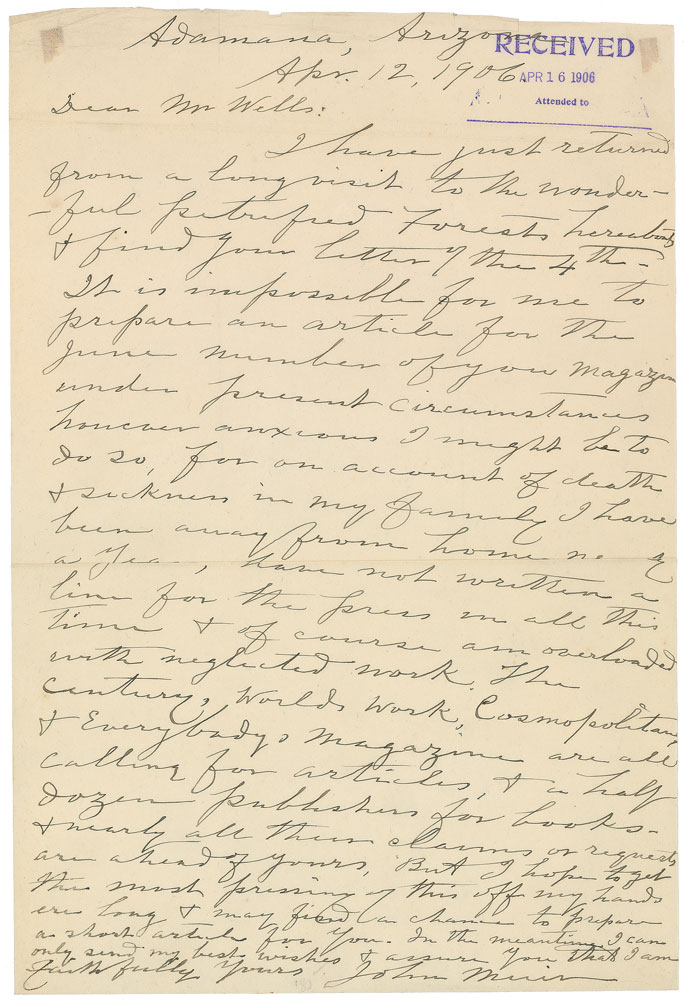 Adamana, Arizona
RECEIVED
APR 16 1906
Attended to
Apr. 12, 1906.
Dear Mr Wells:
I have just returned
from a long visit to the wonder-
-ful Petrified Forests hereabouts
& find your letter of the 4th-
It is impossible for me to
prepare an article for the
June number of your magazine
under present circumstances
however anxious I might be to
do so, for on account of death
& sickness in my family I have
been away from home
a year, have not written a
line for the press in all this
time & of course am overloaded
with neglected work. The
Century, Worlds Work, Cosmopolitan,
& Everybodys Magazine are all
calling for articles, & a half
dozen publishers for books-
& nearly all their claims or requests
are ahead of yours, But I hope to get
the most pressing of this off my hands
ere long & may find a chance to prepare
a short article for you. In the meantime I can
only send my best wishes & assure you that I am
Faithfully Yours John Muir